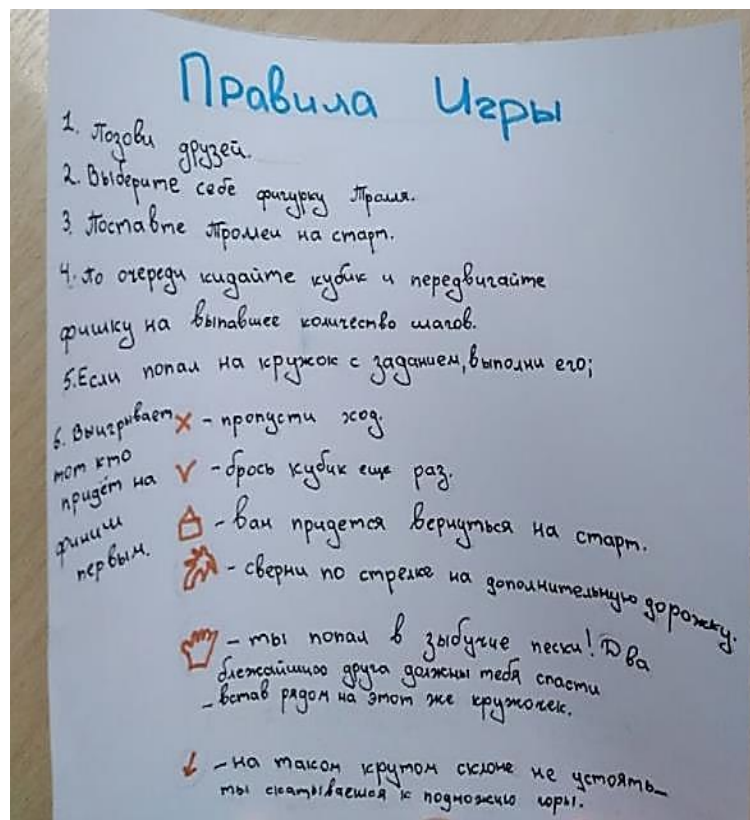 Правила Игры
1. Позови друзей.
2. Выберите себе фигурку Тролля.
3. Поставте Тролей на старт.
4. По очереди кидайте кубик и передвигайте
фишку на выпавшее количество шагов.
5. Если попал на кружок с заданием, выполни его;
× - пропусти ход.
v - брось кубик еще раз.
- вам придется вернуться на старт.
- сверни по стрелке на дополнительную дорожку.
- ты попал в зыбучие пески! Два
ближайшие друга должны тебя спасти
- встав рядом на этот же кружочек.
↓ - на таком крутом склоне не устоять -
ты скатываешся к подножию горы.
6. Выигрывает
тот кто
придёт на
финиш
первым.